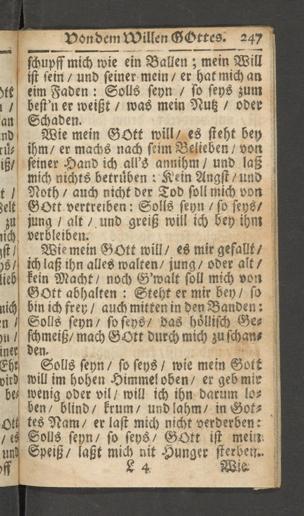 Von dem Willen GOttes. 247
schupff mich wie ein Ballen ; mein Will
ist sein / und seiner mein / er hat mich an
eim Faden : Solls seyn / so seys zum
best'n er weißt / was mein Nutz / oder
Schaden.
Wie mein GOtt will / es steht bey
ihm / er machs nach seim Belieben / von
seiner Hand ich all's annihm / und laß
mich nichts betrüben : Kein Angst / und
Noth / auch nicht der Tod soll mich von
GOtt vertreiben : Solls seyn / so seys /
jung / alt / und greiß will ich bey ihm
verbleiben.
Wie mein GOtt will / es mir gefallt /
ich laß ihn alles walten / jung / oder alt /
kein Macht / noch G'walt soll mich von
GOtt abhalten : Steht er mir bey / so
bin ich frey / auch mitten in den Banden :
Solls seyn / so seys / das höllisch Ge-
schmeiß / mach GOtt durch mich zu schan-
den.
Solls seyn / so seys / wie mein Gott
will im hohen Himmel oben / er geb mir
wenig oder vil / will ich ihn darum lo-
ben / blind / krum / und lahm / in Got-
tes Nam / er last mich nicht verderben :
Solls seyn / so seys / GOtt ist mein
Speiß / laßt mich nit Hunger sterben.
L 4 Wie